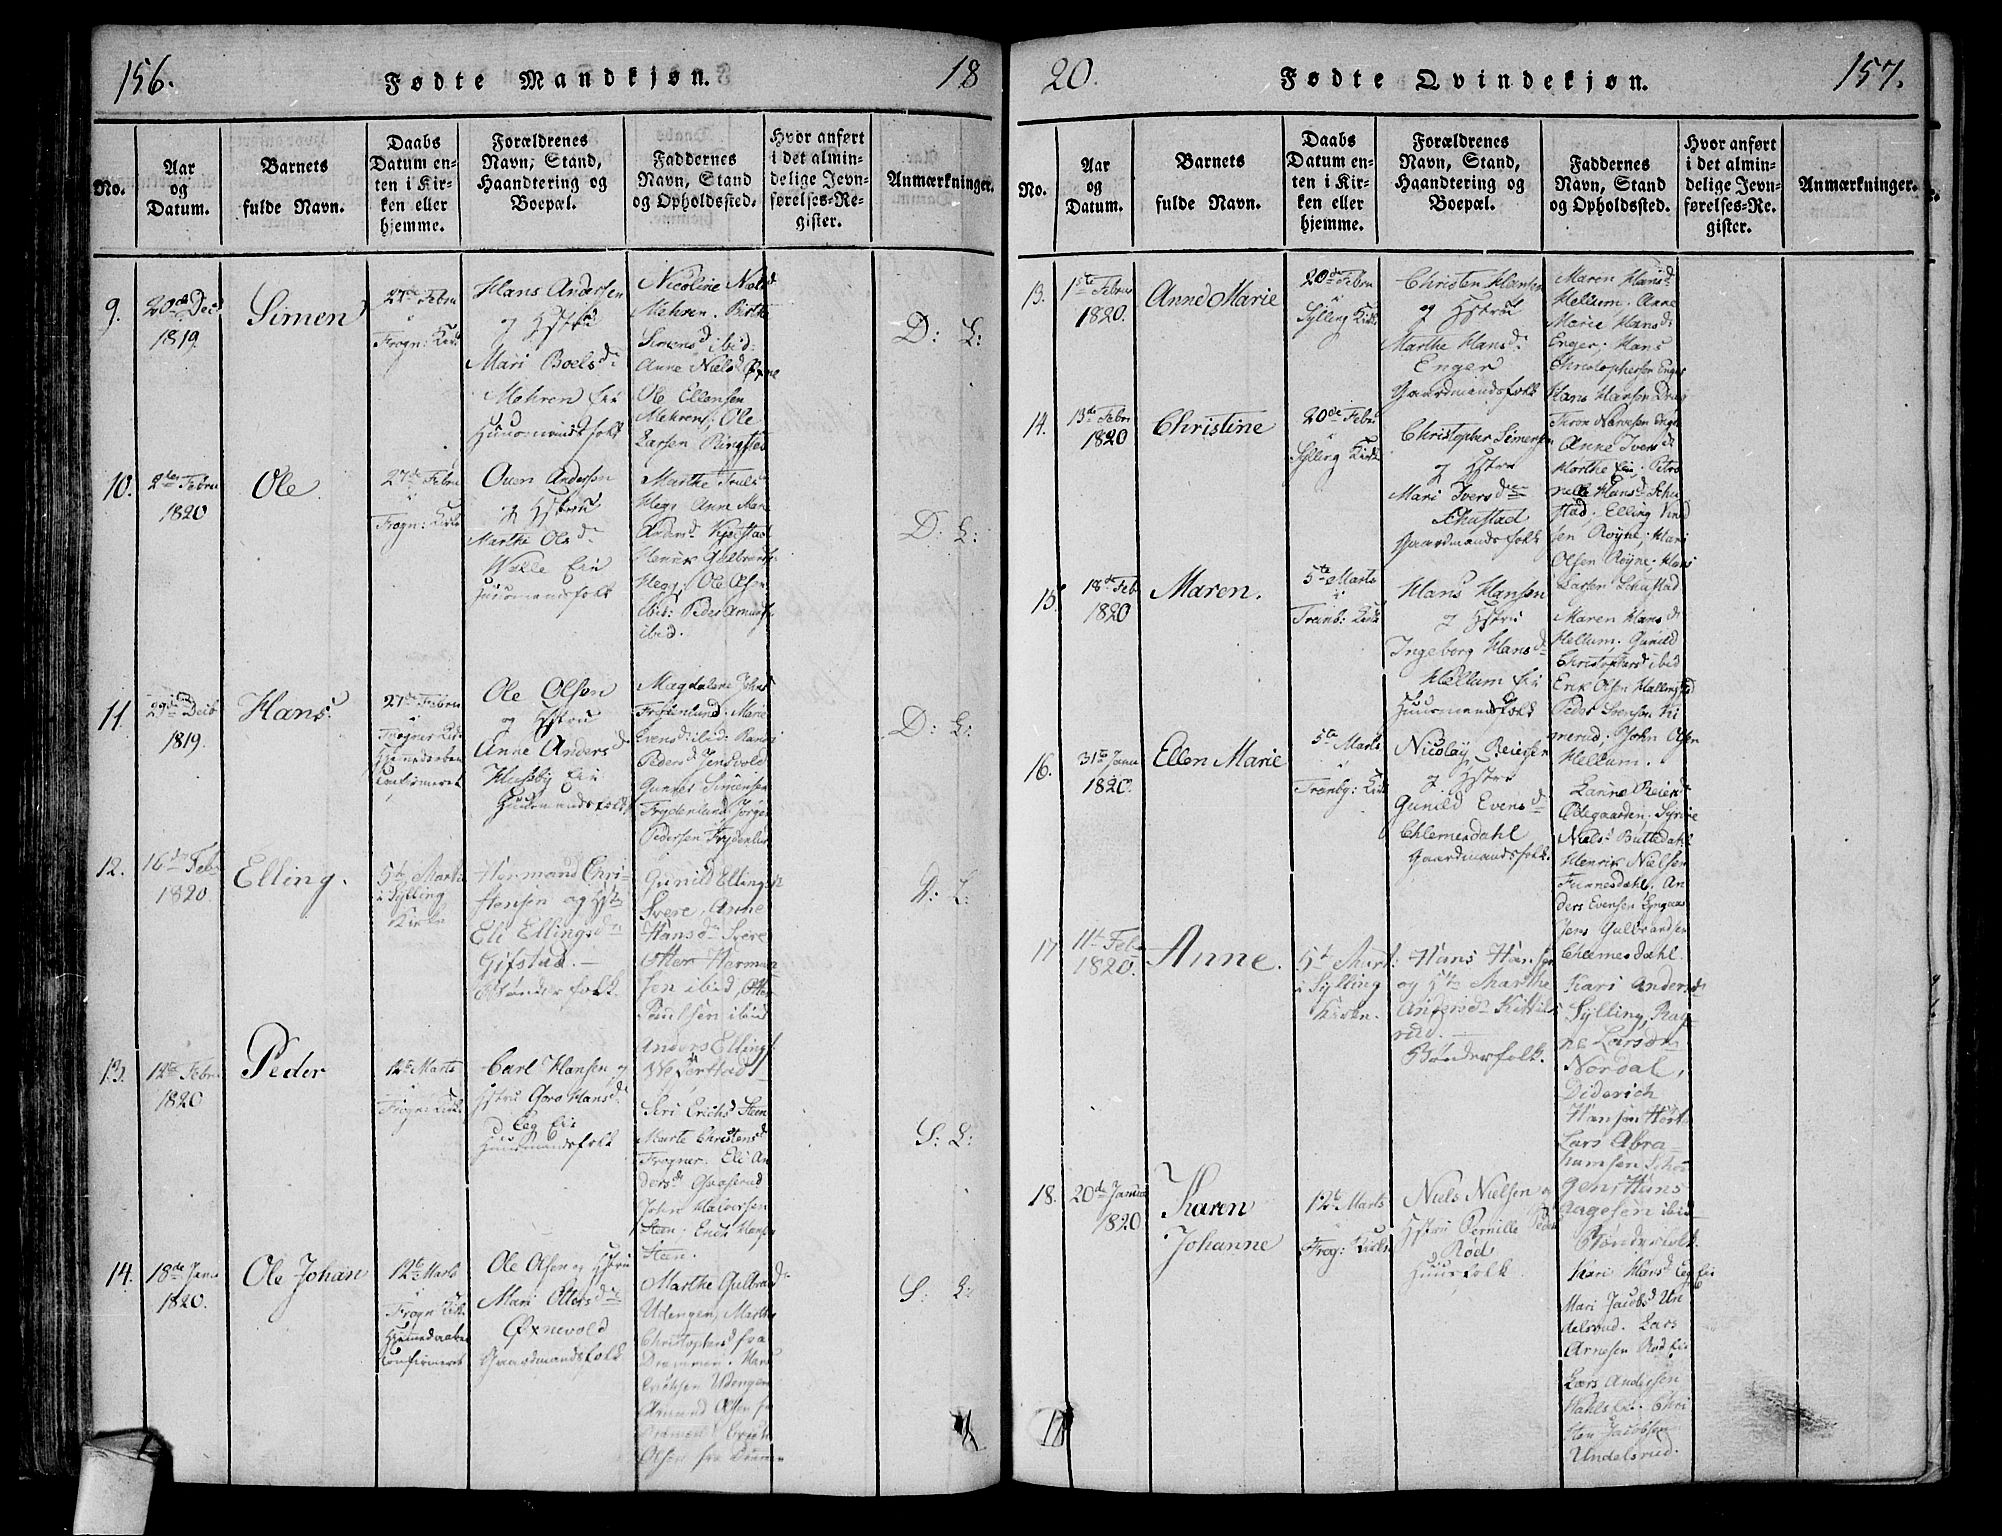 156.
Fødte Mandkjøn.
18
No.
Aar
og
Datum.
Barnets
fulde Navn.
Daabs
Datum en-
ten i Kir-
ken eller
hjemme.
Forældrenes
Navn, Stand,
Haandtering og
Boepæl.
Faddernes
Navn, Stand
og Opholdssted.
Hvor anført
i det almin-
delige Jevn-
førelses-Re-
gister.
Anmærkninger.
9.
20de Dec
1819.
Simen
27de Febru
i
Frogn: Kirk
Hans Andersen
og Hstru
Mari Boelsd
Mehren Eie
Huusmandsfolk
Nicoline Nielsd
Mehren. Birthe
Simensd ibid:
Anne Nielsd
Ole Ellensen
Mehrens; Ole
Larsen Ringstad
D: L:
10.
2den Febru
1820
Ole
27de Febru
i
Frogn: Kirk
Ouen Andersen
og Hstru
Marthe Olsd
Walle Eie
Huusmandsfolk
Marthe Truls
Hegg. Anne Marie
Andersd
Henrik Gulbrands
Hegg; Ole Olsen
ibid: Peder Amunds
ibid.
D: L:
11.
29de Decb
1819.
Hans.
27de Febru
i
Frogner Kirk
Hjemmedøben
Confirmeret
Ole Olsen
og Hstru
Anne Andersd
Hussby Eie
Huusmandsfolk
Magdalene Johns
Frydenlund. Marie
Evensd ibid: Randi
Pedersd Jensvold
Gunder Simensen
Frydenlund. Jørgen
Pedersen Frydenlund
D: L:
12.
16de Feb.
1820
Elling.
5te Marts
i Sylling
Kirke
Hermand Chri-
stensen og Hst
Eli Ellingsd
Gifstad. —
Bønderfolk.
Gunild Ellingsd
Svere, Anne
Hansd Svere
Otter Herman
sen ibid, Otter
Paulsen ibid
Anders Ellings
D: L:
13.
14de Febru
1820
Peder
12te Marts
i
Frogn: Kirk
Carl Hansen og
Hstru Goro Hansd
Eeg Eie
Huusmandsfolk
Siri Erichsd Steen
Marte Christensd
Frogner. Eli An
dersd
John Halvorsen
Steen. Erich Hansen
Steen.
S: L:
14.
18de Janu
1820.
Ole Johan
12te Marts
i
Frogn Kirk.
Hjemmedaaben
Confirmeret
Ole Olsen og Hstru
Mari Ottersd
Øxnevold
Gaardmandsfolk
Marthe Gulbrandsd
Udengen, Marthe
Christophersd fra
Drammen. Hans
Erichsen Udengen
Amund Olsen fra
Drammen Erich
Olsen fra Drammen
S: L:
20.
Fødte Qvindekjøn.
157.
No.
Aar
og
Datum.
Barnets
fulde Navn.
Daabs
Datum en-
ten i Kir-
ken eller
hjemme.
Forældrenes
Navn, Stand,
Haandtering og
Boepæl.
Faddernes
Navn, Stand
og Opholdssted.
Hvor anført
i det almin-
delige Jevn-
førelses-Re-
gister.
Anmærkninger.
13.
1ste Febru
1820.
Anne Marie
20de Febru
i
Sylling Kirk
Christen Hansen
og Hstru
Marthe Hansd
Enger
Gaardmandsfolk
Maren Hansd
Hellum. Anne
Marie Hansd
Enger; Hans
Christophersen Enger
Hans Hansen Drag
14.
13de Febru
1820
Christine
20de Febru
i
Sylling Kirk
Christopher Simensen
og Hstru
Mari Iversd
Schustad
Gaardmandsfolk
Thron Narvesen Enger
Anne Iversd
Hørthe Eie; Petro
nelle Hansd Schu
stad. Elling
sen Røyne. Hans
Olsen Røyne. Hans
Larsen Schustad
15.
18de Feb
1820
Maren.
5te Marts
i
Tranb: Kirk
Hans Hansen
og Hstru
Ingeborg Hansd
Hellum Eie
Huusmandsfolk
Maren Hansd
Hellum. Gunild
Christophersd ibid
Erik Olsen Hallingstad
Peder Svensen Ki
merud. John Olsen
Hellum.
16.
31te Janu
1820.
Ellen Marie
5te Marts
i
Tranby: Kirk
Nicolay Reiersen
og Hstru
Gunild Evensd
Ehlemesdahl
Gaardmandsfolk.
Lanne Reiersd
Ødegaarden. Syrine
Nielsd Buttedahl
Henrik Nielsen
Funnesdahl, An
ders Evensen Lyngaas
Jens Gulbrandsen
Ehlemesdahl.
17
11te Feb.
1820.
Anne.
5te Mart:
i Sylling
Kirke.
Hans Hansen
og Hst Marthe
Andersd Kittils
rud.
Bønderfolk.
Kari Andersd
Sylling, Rag
ne Larsd
Nordal,
Diderich
Hansen Hørte
Lars Abra
hamsen Scho
gen, Hans
Aagesen ibid
Bønderfolk.
18.
20de Janua
1820
Karen
Johanne
12te Marts
i
Frog: Kirke
Niels Nielsen og
Hstru Pernille Peders
Rød
Huusfolk
Kari Hansd Eeg Eie
Mari Jacobsd Un
delsrud. Lars
Arnesen Rød Eie
Lars Andersen
Chri
sten Jacobsen
Undelsrud.
18